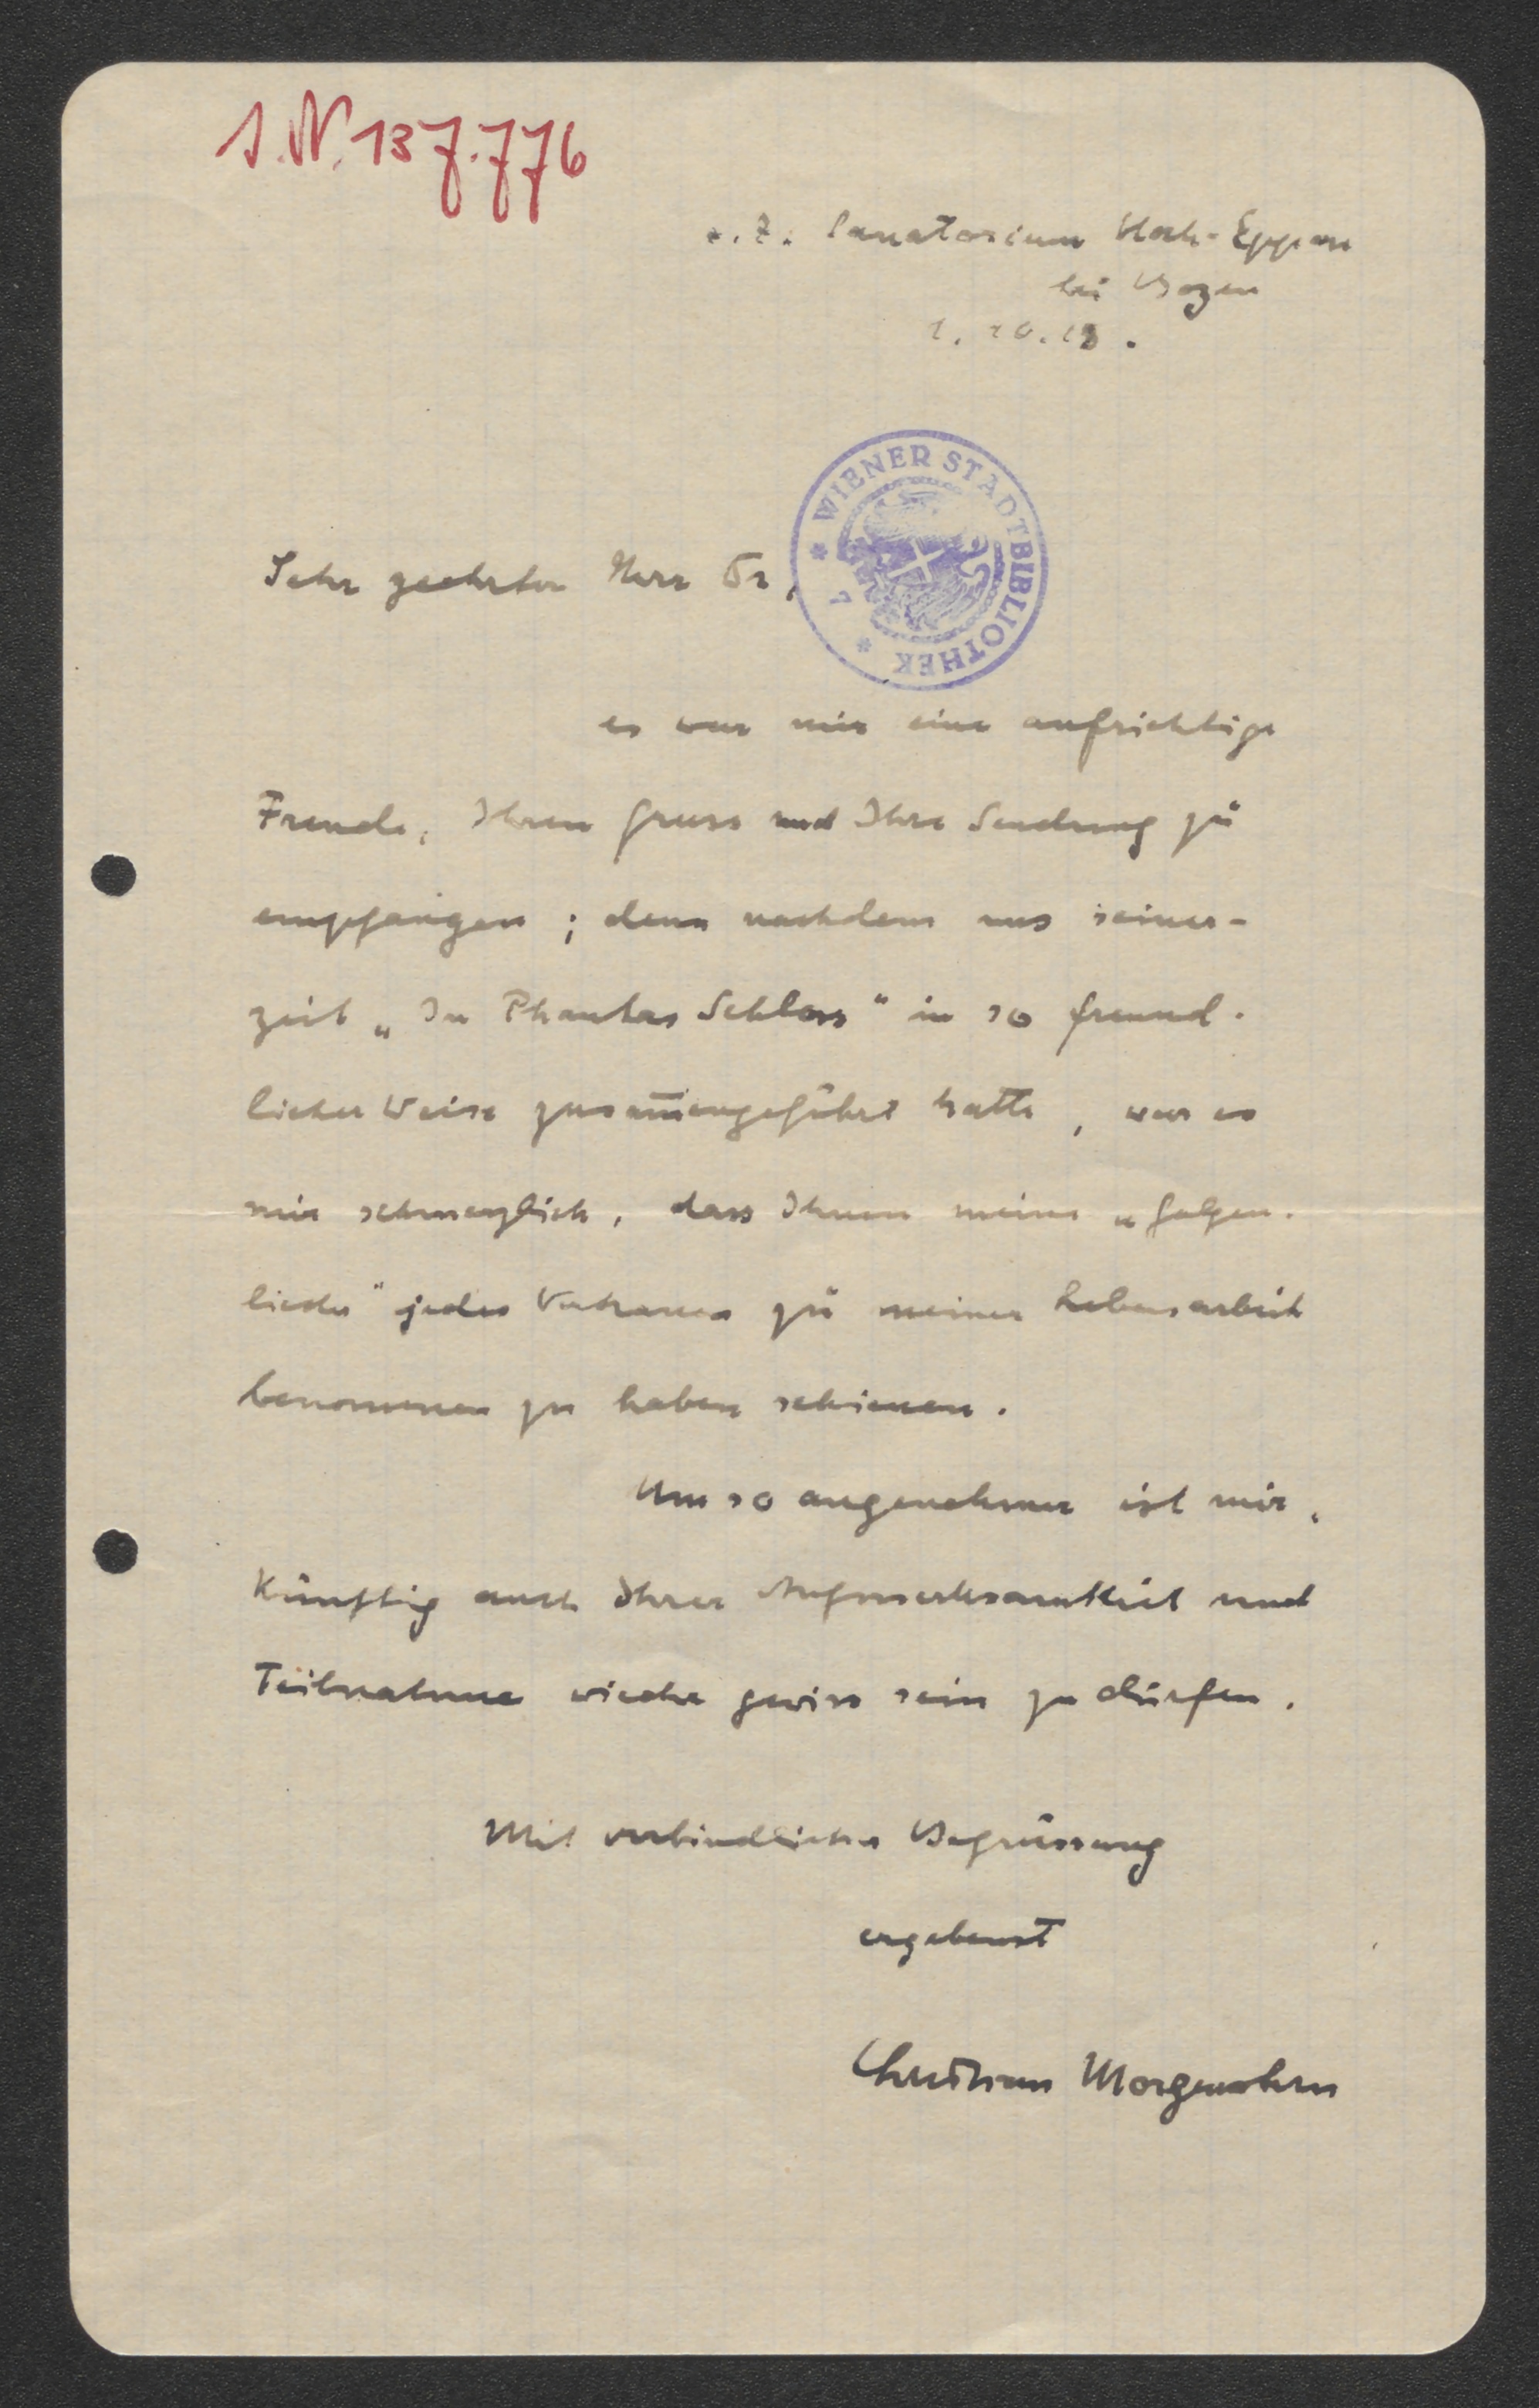 I.N. 137.776
z. Z. Sanatorium Hoch-Eppan
bei Bozen
1. 10. 13.
WIENER STADTBIBLIOTHEK
Sehr geehrter Herr Dr,
es war mir eine aufrichtige
Freude, Ihren Gruss und Ihre Sendung zu
empfangen; denn nachdem uns seiner-
zeit „In Phantas Schloss" in so freund-
licher Weise zusam̅engeführt hatte, war es
mir schmerzlich, dass Ihnen meine „Galgen-
lieder" jedes Vertrauen zu meiner Lebensarbeit
benommen zu haben schienen.
Um so angenehmer ist mir,
künftig auch Ihrer Aufmerksamkeit und
Teilnahme wieder gewiss sein zu dürfen.
Mit verbindlicher Begrüssung
ergebenst
Christian Morgenstern